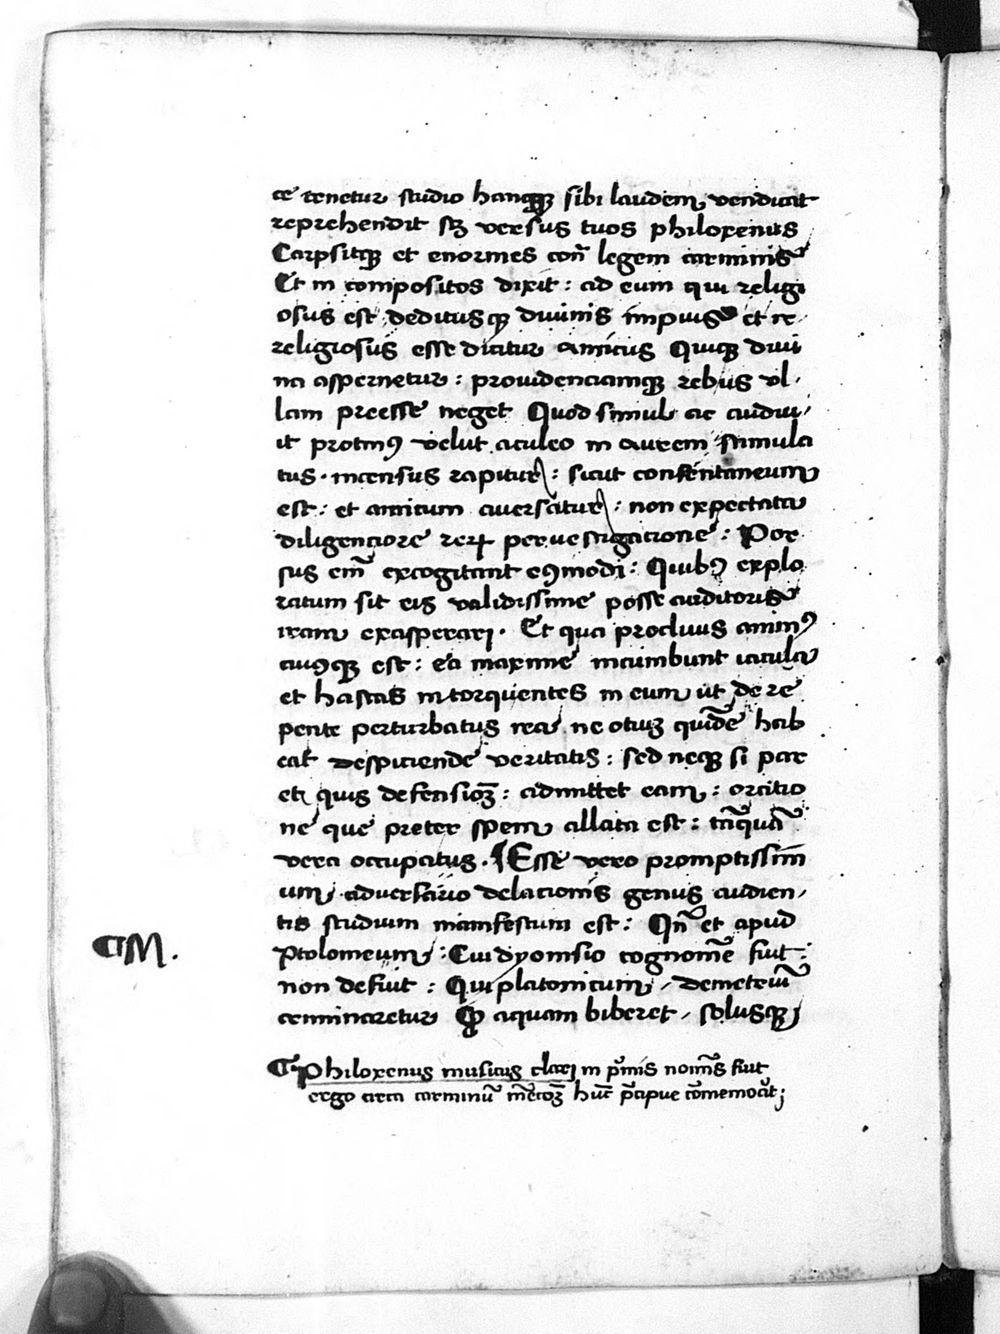 te tenetur studio hancqꝫ sibi laudem vendicat
reprehendit sꝫ versus tuos philoxenus
Carpsitqꝫ et enormes con̄ legem carminis
Et in compositos dixit : ad eum qui religi
osus est deditusqꝫ diuinis impius et re
religiosus esse dicitur amicus Quiqꝫ diui
na aspernetur : prouidenciamqꝫ rebus vl-
lam preesse neget Quod simul ac audiu-
it protinꝰ velut aculeo in aurem stimula
tus . incensus rapitur : sicut consentaneum
est : et amicum auersatur : non expectata
diligenciore rerꝝ peruestigatione : Por
sus em̄ excogitant eꝰmodi : Quibꝰ explo
ratum sit eis validissime posse auditoris
iram exasperari . Et qua procliuus animꝰ
cuiꝰqꝫ est : ea maxime incumbunt iacula
et hastas intorquentes in eum ut de re
pente perturbatus rea ne otiuꝫ quidē hab
eat despiciende veritatis : sed neqꝫ si par
et quis defensioꝫ : admittet eam : oratio
ne que preter spem allata est : tāquā
vera occupatus . ¶ Esse vero promptissim
um aduersario delacionis genus audien-
tis studium manifestum est : Qn̄ et apud
¶ M .
Ptolomeum : Cui dyonisio cognomē fuit :
non defuit : Qui platonicum , demetriū
criminaretur Qꝫ aquam biberet , solusqꝫ
¶ Philoxenus musicus clari in pⁱmis nomīs fuit
ergo circa carminū huīc p̄cipue cōmemorat ;